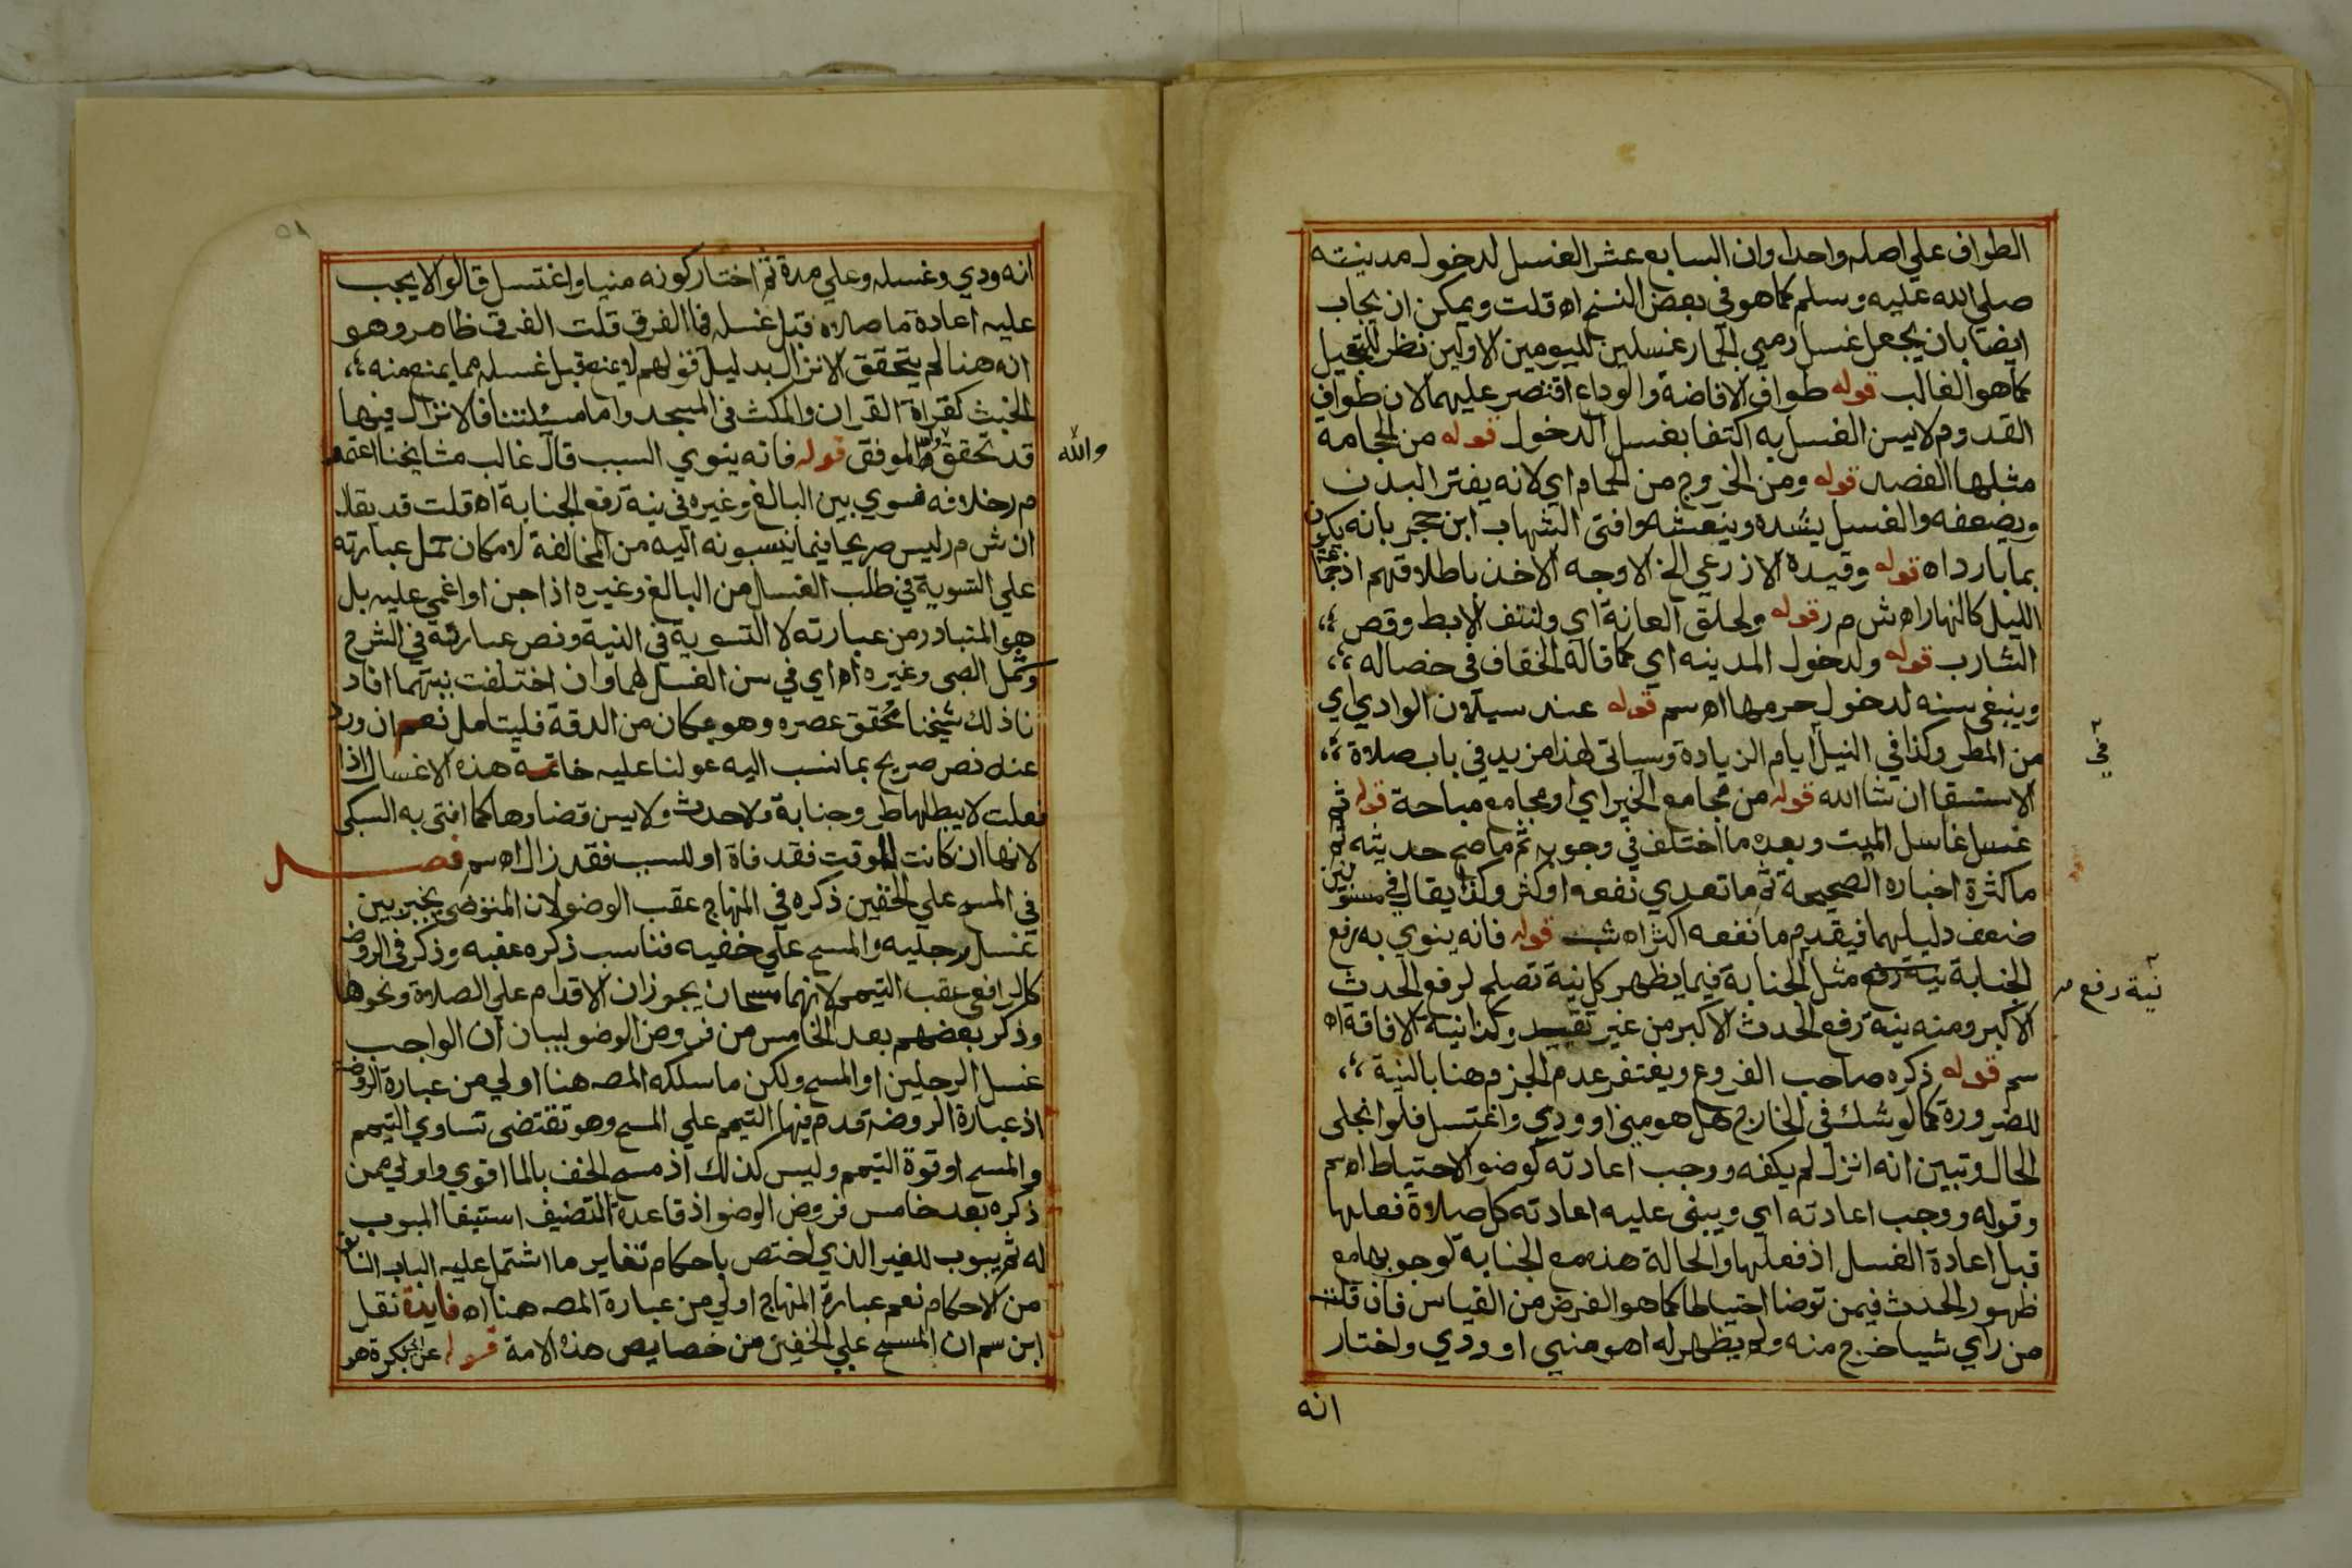 الطواف علي اصله واحدا وان السابع عشر الغسل لدخول مدينته
صلي الله عليه وسلم كما هو في بعض النسخ اه قلت ويمكن ان يجاب
ايضا بان يجعل غسل رمي الجمار غسلين لليومين الاولين نظر للتعجيل
كما هو الغالب قوله طواف الافاضة والوداع اقتصر عليهما لان طواف
القدوم لا يسن الغسل به اكتفا بغسل الدخول قوله من الحجامة
مثلها الفصد قوله ومن الخروج من الحمام اي لانه يفتر البدن
ويضعفه والغسل يشده وينعشه وافتي الشهاب ابن حجر بانه يكون
بما بارد اه قوله وقيده الازرعي الخ الاوجه الاخذ باطلاقهم اذ
الليل كالنهار اه ش م ر قوله ولحلق العانة اي ولنتف الابط وقص
الشارب قوله ولدخول المدينه اي كما قاله الخفاف في خصاله
وينبغي سنه لدخول حرمها اه سم قوله عند سيلان الوادي اي
من المطر وكذا في النيل ايام الزيادة وسياتي لهذا مزيد في باب صلاة
الاستسقا ان شا الله قوله من مجامع الخير اي او مجامع مباحة قوله ثم
غسل غاسل الميت وبعده ما اختلف في وجوبه ثم ما صح حديثه ثم
ما كثرة اخباره الصحيحة ثم ما تعدي نفعه او كثر وكذا يقال في مسنونين
في
ضعف دليلهما فيقدم ما نفعه اكثر اه قوله فانه ينوي به رفع
الجنابة نية رفع مثل الجنابة فيما يظهر كل نية تصلح لرفع الحدث
نية رفع
الاكبر ومنه نية رفع الحدث الاكبر من غير تقييد وكذا نية الافاقة اه
سم قوله ذكره صاحب الفروع ويغتفر عدم الجزم هنا بالنية
للضرورة كما لو شك في الخارج هل هو مني او ودي واغتسل فلو انجلي
الحال وتبين انه انزل لم يكفه ووجب اعادته كوضو الاحتياط اه سم
وقوله ووجب اعادته اي ويبني عليه اعادته كل صلاة فعلها
قبل اعادة الغسل اذ فعلها والحالة هذه مع الجنابة لوجوبها مع
ظهور الحدث فيمن توضا احتياطا كما هو الفرض من القياس فان قلت
من راي شيا خرج منه ولم يظهر له اهو مني او ودي واختار
انه
انه ودي وغسله وعلي مدة ثم اختار كونه منيا واغتسل قالوا لا يجب
عليه اعادة ما صلاه قبل غسله فما الفرق قلت الفرق ظاهر وهو
انه هنا لم يتحقق الانزال بدليل قولهم لا يمنع قبل غسله مما يمنع منه
الخبث كقراة القران والمكث في المسجد واما مسئلتنا فالانزال فيها
قد تحقق والله الموفق قوله فانه ينوي السبب قال غالب مشايخنا اعتمد
والله
م ر خلافه فسوي بين البالغ وغيره في نية رفع الجنابة اه قلت قد يقال
ان ش م ر ليس صريحا فيما ينسبونه اليه من المخالفة لامكان حمل عبارته
علي التسوية في طلب الغسل من البالغ وغيره اذا جن او اغمي عليه بل
هو المتبادر من عبارته لا التسوية في النية ونص عبارته في الشرح
وشمل الصبي وغيره اه اي في سن الغسل لهما وان اختلفت نيتهما افاد
نا ذلك شيخنا محقق عصره وهو بمكان من الدقة فليتامل نعم ان ورد
عنه نص صريح بما نسب اليه عولنا عليه خاتمة هذه الاغسال اذا
فعلت لا يبطلها طرو جنابة ولا حدث ولا يسن قضاوها كما افتي به السبكي
لانها ان كانت للوقت فقد فاة او للسبب فقد زال اه سم فصل
في المسح علي الخفين ذكره في المنهاج عقب الوضو لان المتوضي يخير بين
غسل رجليه والمسح علي خفيه فناسب ذكره عقبه وذكر في الروضة
كالرافعي عقب التيمم لانهما مسحان يجوزان الاقدام علي الصلاة ونحوها
وذكر بعضهم بعد الخامس من فروض الوضو لبيان ان الواجب
غسل الرجلين او المسح ولكن ما سلكه المصه هنا اولي من عبارة الروضة
اذ عبارة الروضة قدم فيها التيمم علي المسح وهو تقتضي تساوي التيمم
والمسح او قوة التيمم وليس كذلك اذ مسح الخف بالما اقوي واولي من
ذكره بعد خامس فروض الوضو اذ قاعدة التصنيف استيفا المبوب
له ثم يبوب للغير الذي اختص باحكام تغاير ما اشتمل عليه الباب
من الاحكام نعم عبارة المنهاج اولي من عبارة المصه هنا اه فايدة نقل
ابن سم ان المسح علي الخفين من خصايص هذه الامة قوله عن ابي بكرة هو